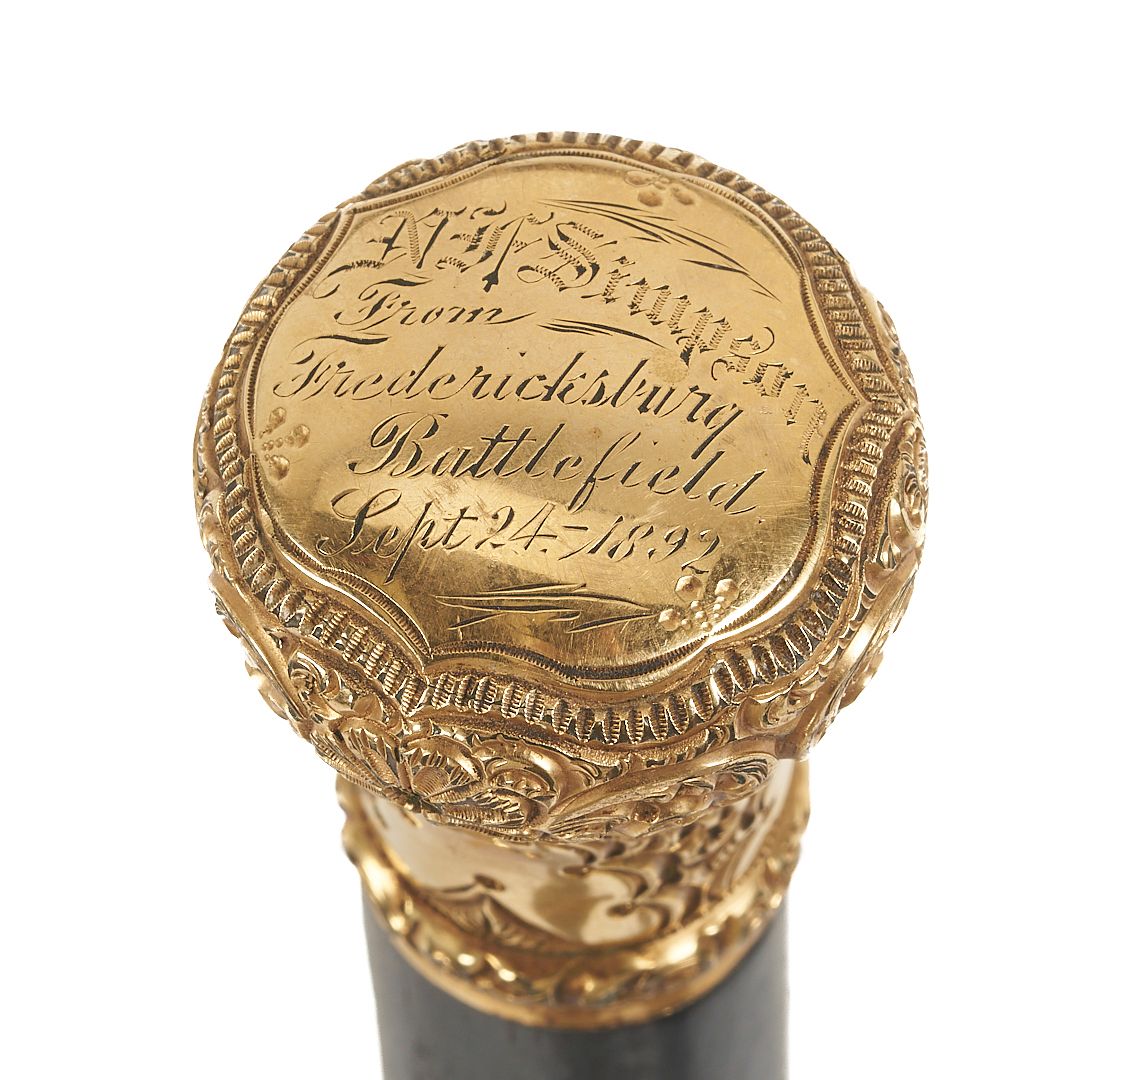 Simpson
From
Fredericksburg
Battlefield.
Sept 24.-1892